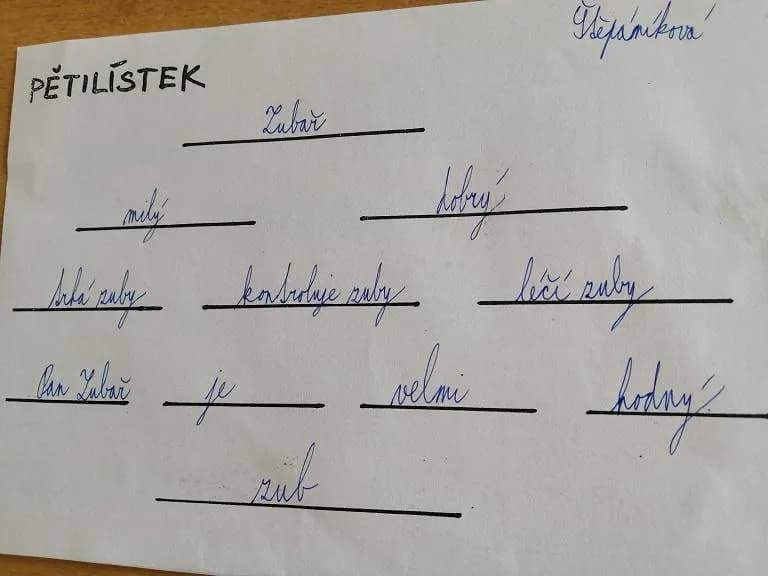 Štěpáníková
PĚTILÍSTEK
Zubař
milý dobrý
trhá zuby kontroluje zuby léčí zuby
Pan Zubař je velmi hodný.
zub